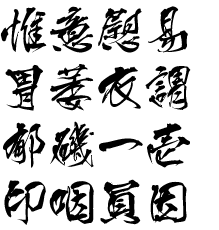 惟意慰易
胃萎衣謂
郁磯一壱
印咽員因